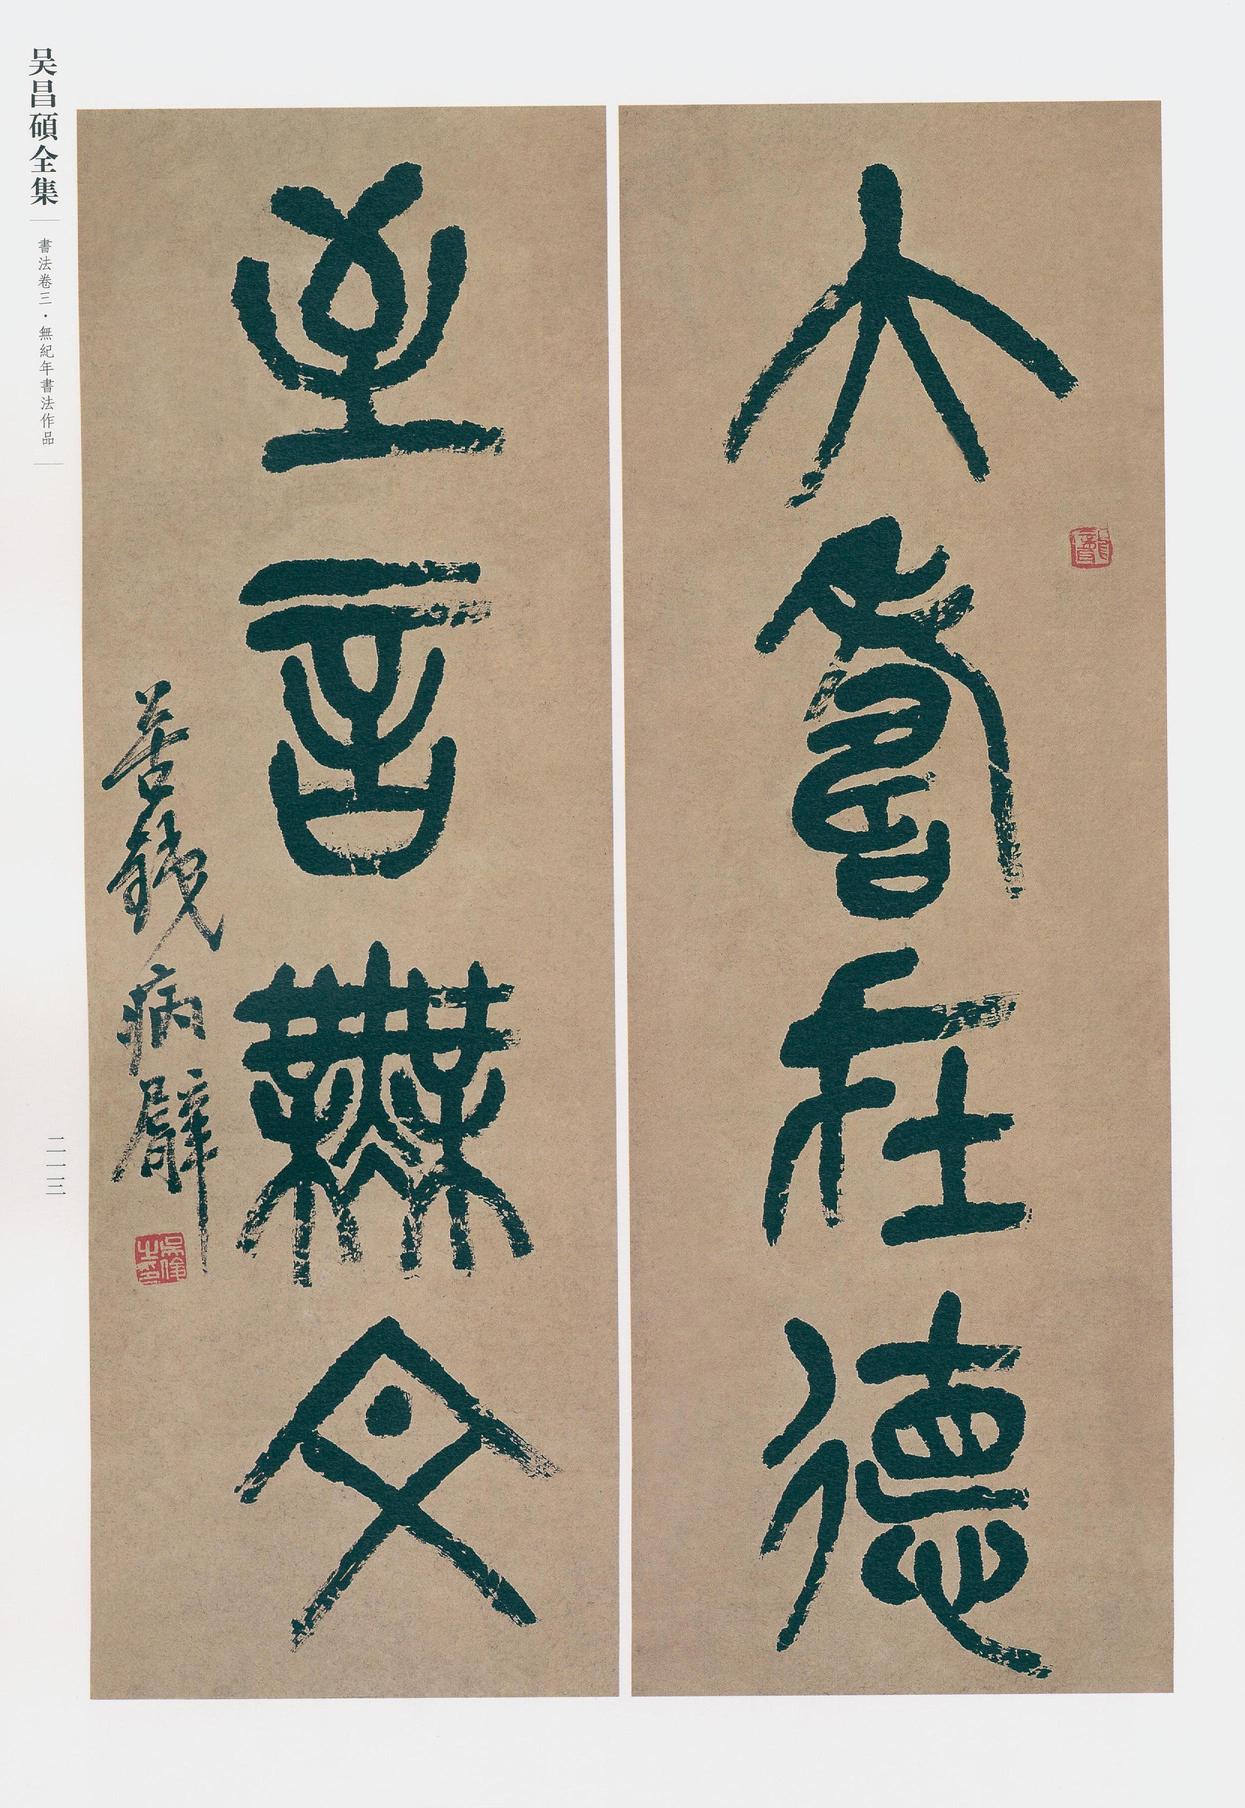 大壽在德
至言無文
苦鐵病臂
吳昌碩全集
書法卷三·無紀年書法作品
二一三